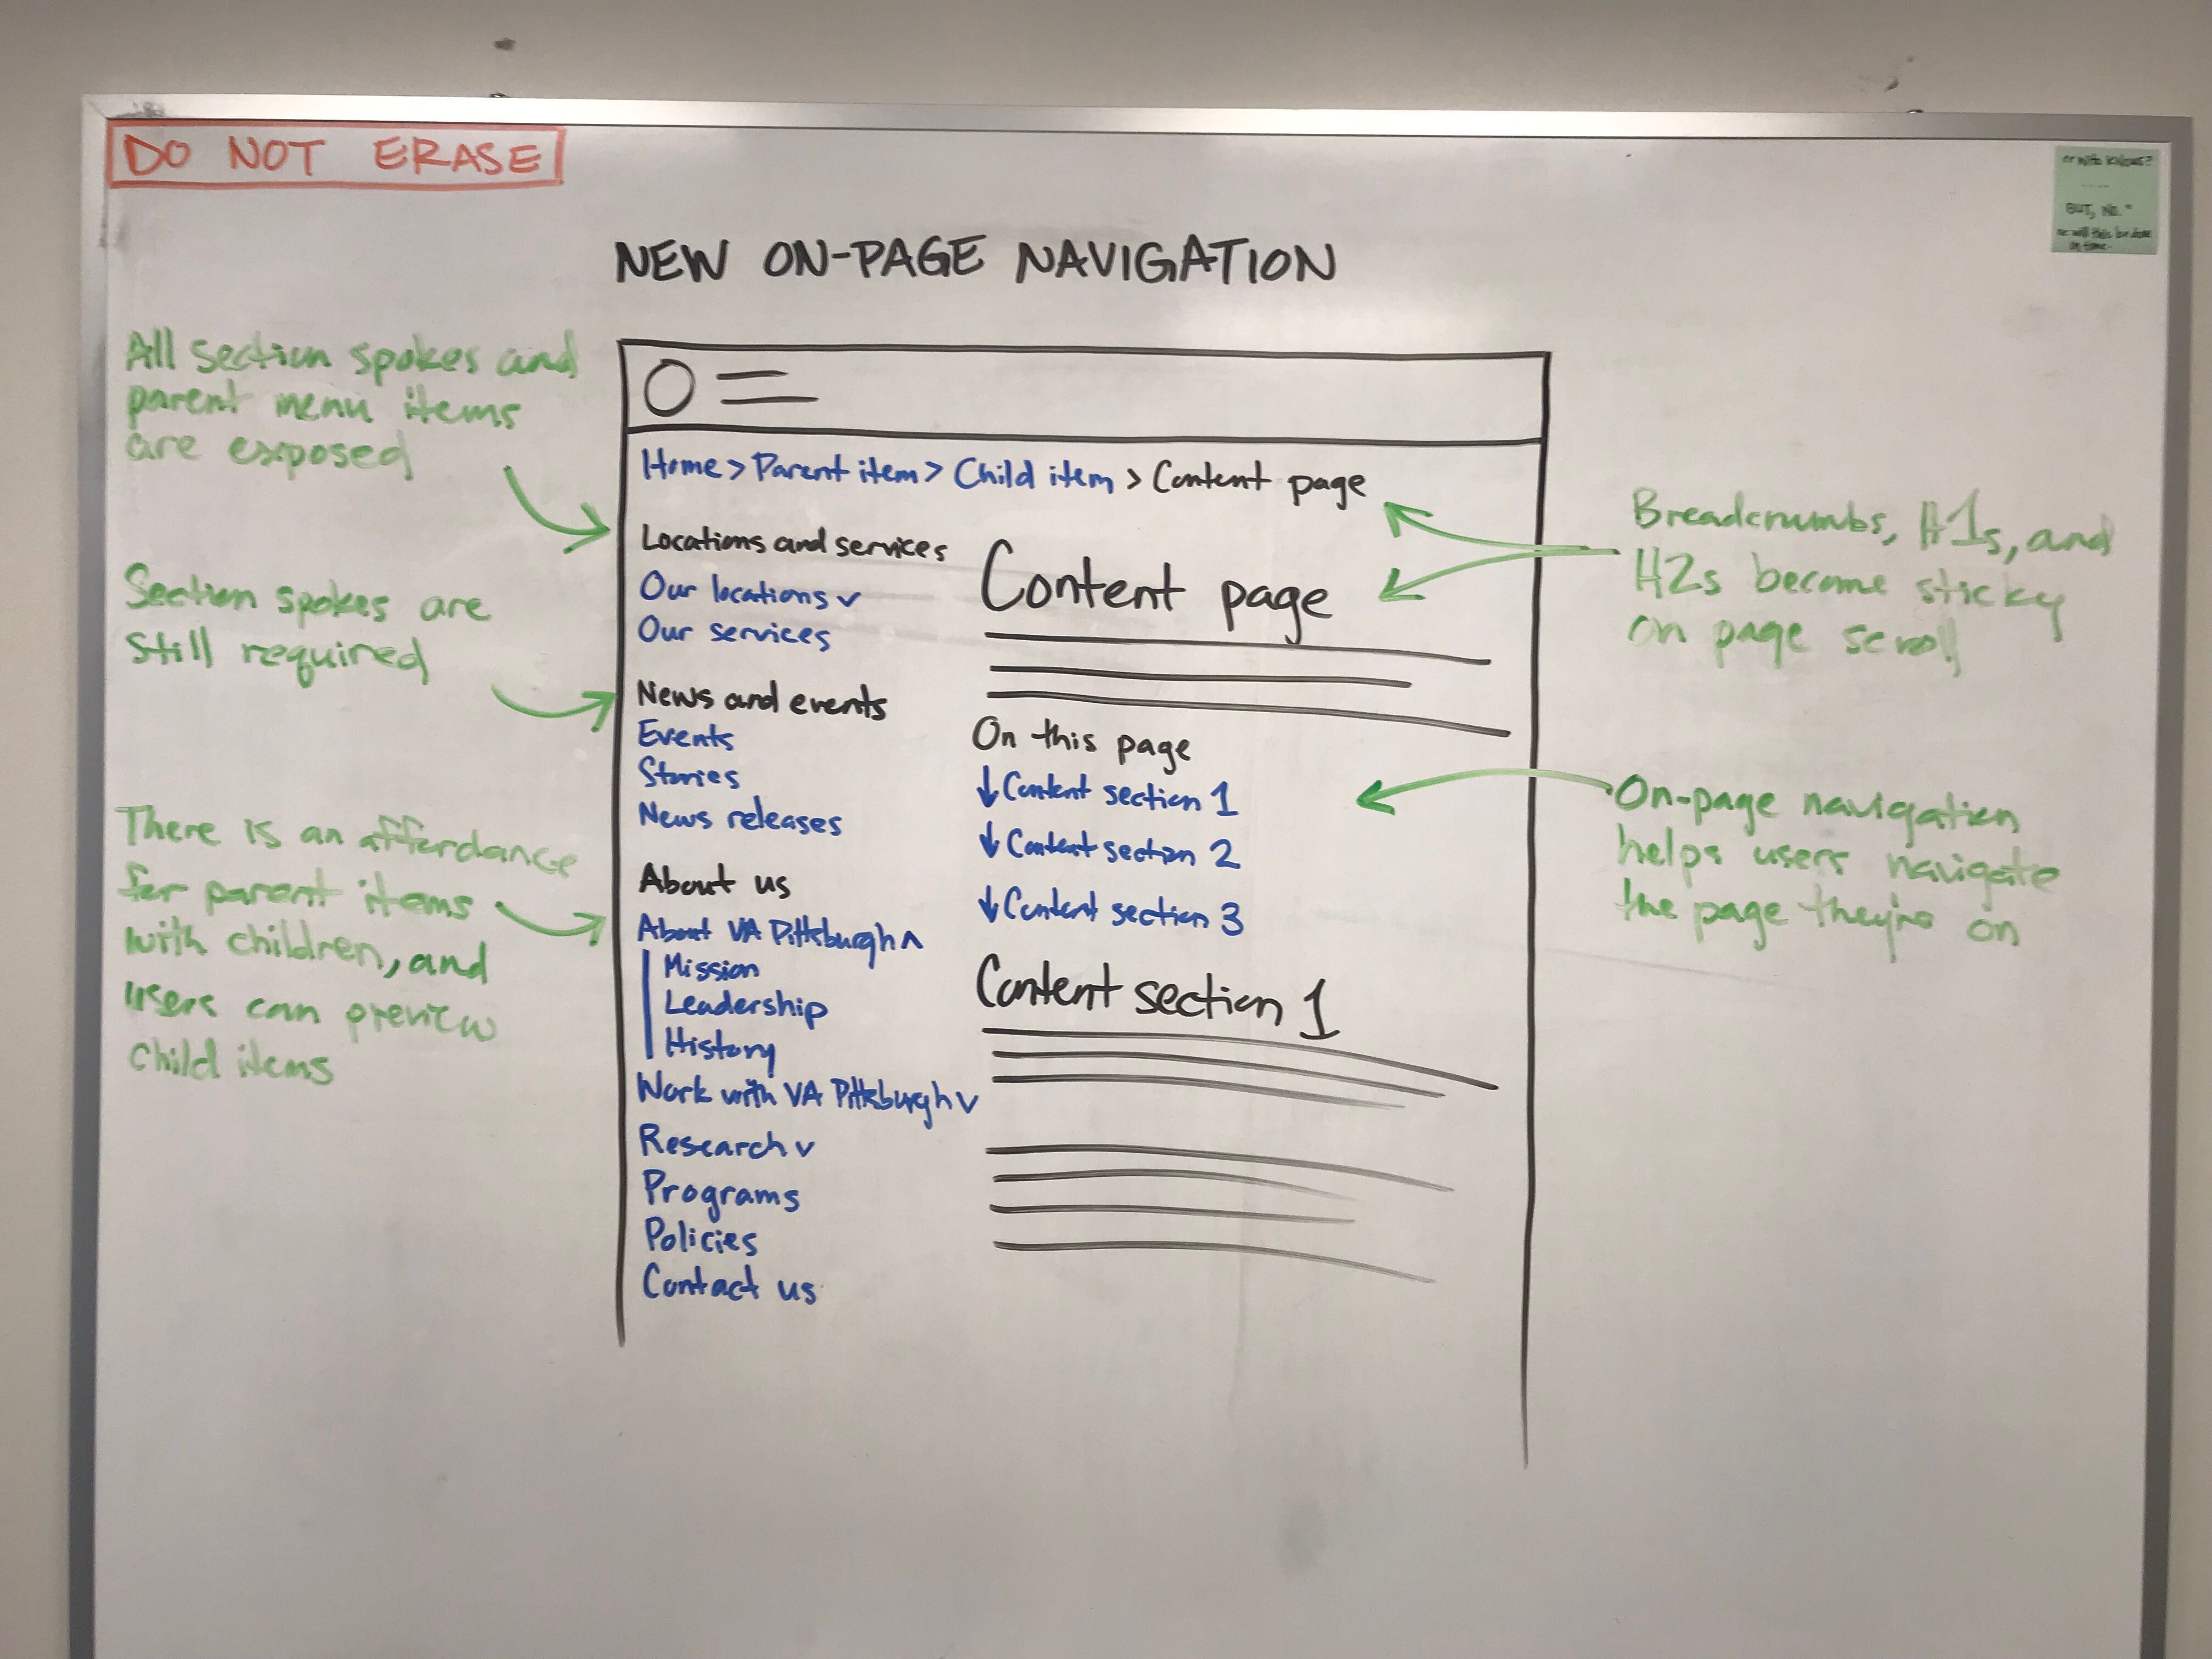 DO NOT ERASE
"WHO KNOWS?
....
BUT, NO."
on time.
NEW ON-PAGE NAVIGATION
All section spokes and
parent menu items
are exposed
Section spokes are
still required
There is an affordance
for parent items
with children, and
users can preview
child items
Home > Parent item > Child item > Content page
Locations and services
Our locations v
Our services
News and events
Events
Stories
News releases
About us
About VA Pittsburgh ^
Mission
Leadership
History
Work with VA Pittsburgh v
Research v
Programs
Policies
Contact us
Content page
On this page
↓ Content section 1
↓ Content section 2
↓ Content section 3
Content section 1
Breadcrumbs, H1s, and
H2s become sticky
on page scroll
On-page navigation
helps users navigate
the page they're on